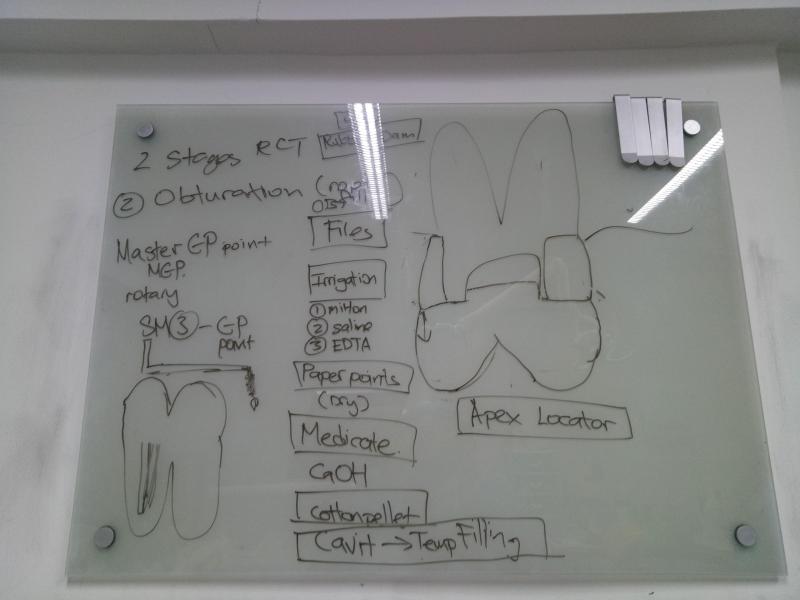 2 Stages RCT
② Obturation
Master GP point
MGP.
rotary
SM③-GP
point
Dam
Files
Irrigation
① milton
② saline
③ EDTA
Paper points
(Dry)
Medicate.
CaOH
Cotton pellet
Cavit → Temp Filling
Apex Locator